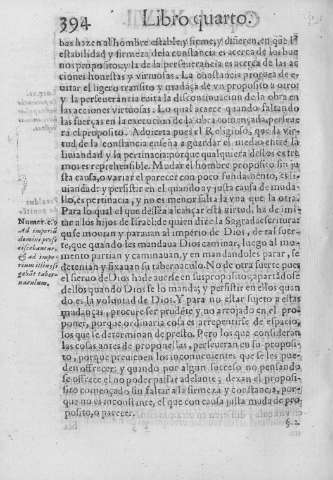 394 Libro quarto.
bas hazen al hombre estable, y firme, y difieren, en que la
estabilidad y firmeza de la constancia es acerca de los bue
nos propositos, y la de la perseuerancia es acerca de las ac
ciones honestas y virtuosas. La constancia procura de e-
uitar el ligero transito y mudaça de vn proposito a otro
y la perseuerancia euita la descontinuacion de la obra en
las acciones virtuosas. Lo qual acaece quando faltando
las fuerças en la execucion de la obra començada, perseue
ra el proposito. Aduierta pues el Religioso, que la vir-
tud de la constancia enseña a guardar el medio entre la
liuiandad y la pertinacia porque qualquiera dellos extre
mos es reprehensible. Mudar el hombre proposito sin ju
sta causa, o variar el parecer con poco fundamento, es li-
uiandad: y persistir en el quando ay justa causa de muda-
llo, es pertinacia, y no es menor falta la vna que la otra.
Para lo qual el que dessea alcançar esta virtud, ha de imi-
tar a los hijos de Israel: de quien dize la Sagrada escritura
q̃ se mouian y parauan al imperio de Dios, de tal suer-
te, que quando les mandaua Dios caminar, luego al mo-
mento partian y caminauan, y en mandandoles parar, se
detenian y fixauan su tabernaculo. No de otra suerte pues
el sieruo de Dios ha de auerse en sus propositos; apartãdose
dellos quando Dios se lo manda; y persistir en ellos quan
do es la voluntad de Dios. Y para no estar sujeto a estas
mudanças, procure ser prudẽte, y no arrojado en el pro-
poner, porque ordinaria cosa es arrepentirse de espacio,
los que se determinan de presto. Pero los que consideran
las cosas antes de proponerlas, perseueran en su proposi-
to, porque preuienen los inconuenientes que se les pue-
den offrecer; y quando por algun sucesso no pensando
se offrece el no poder passar adelante; dexan el proposi-
to començado sin faltar a la firmeza y constancia, por-
que no es inconstante, el que con causa justa muda de pro
posito, o parecer.
Numer. c. 9
Ad imperiũ
domini profi
ciscebantur,
& ad impe-
rium illius fi
gebãt taber-
naculum.
§. 2.